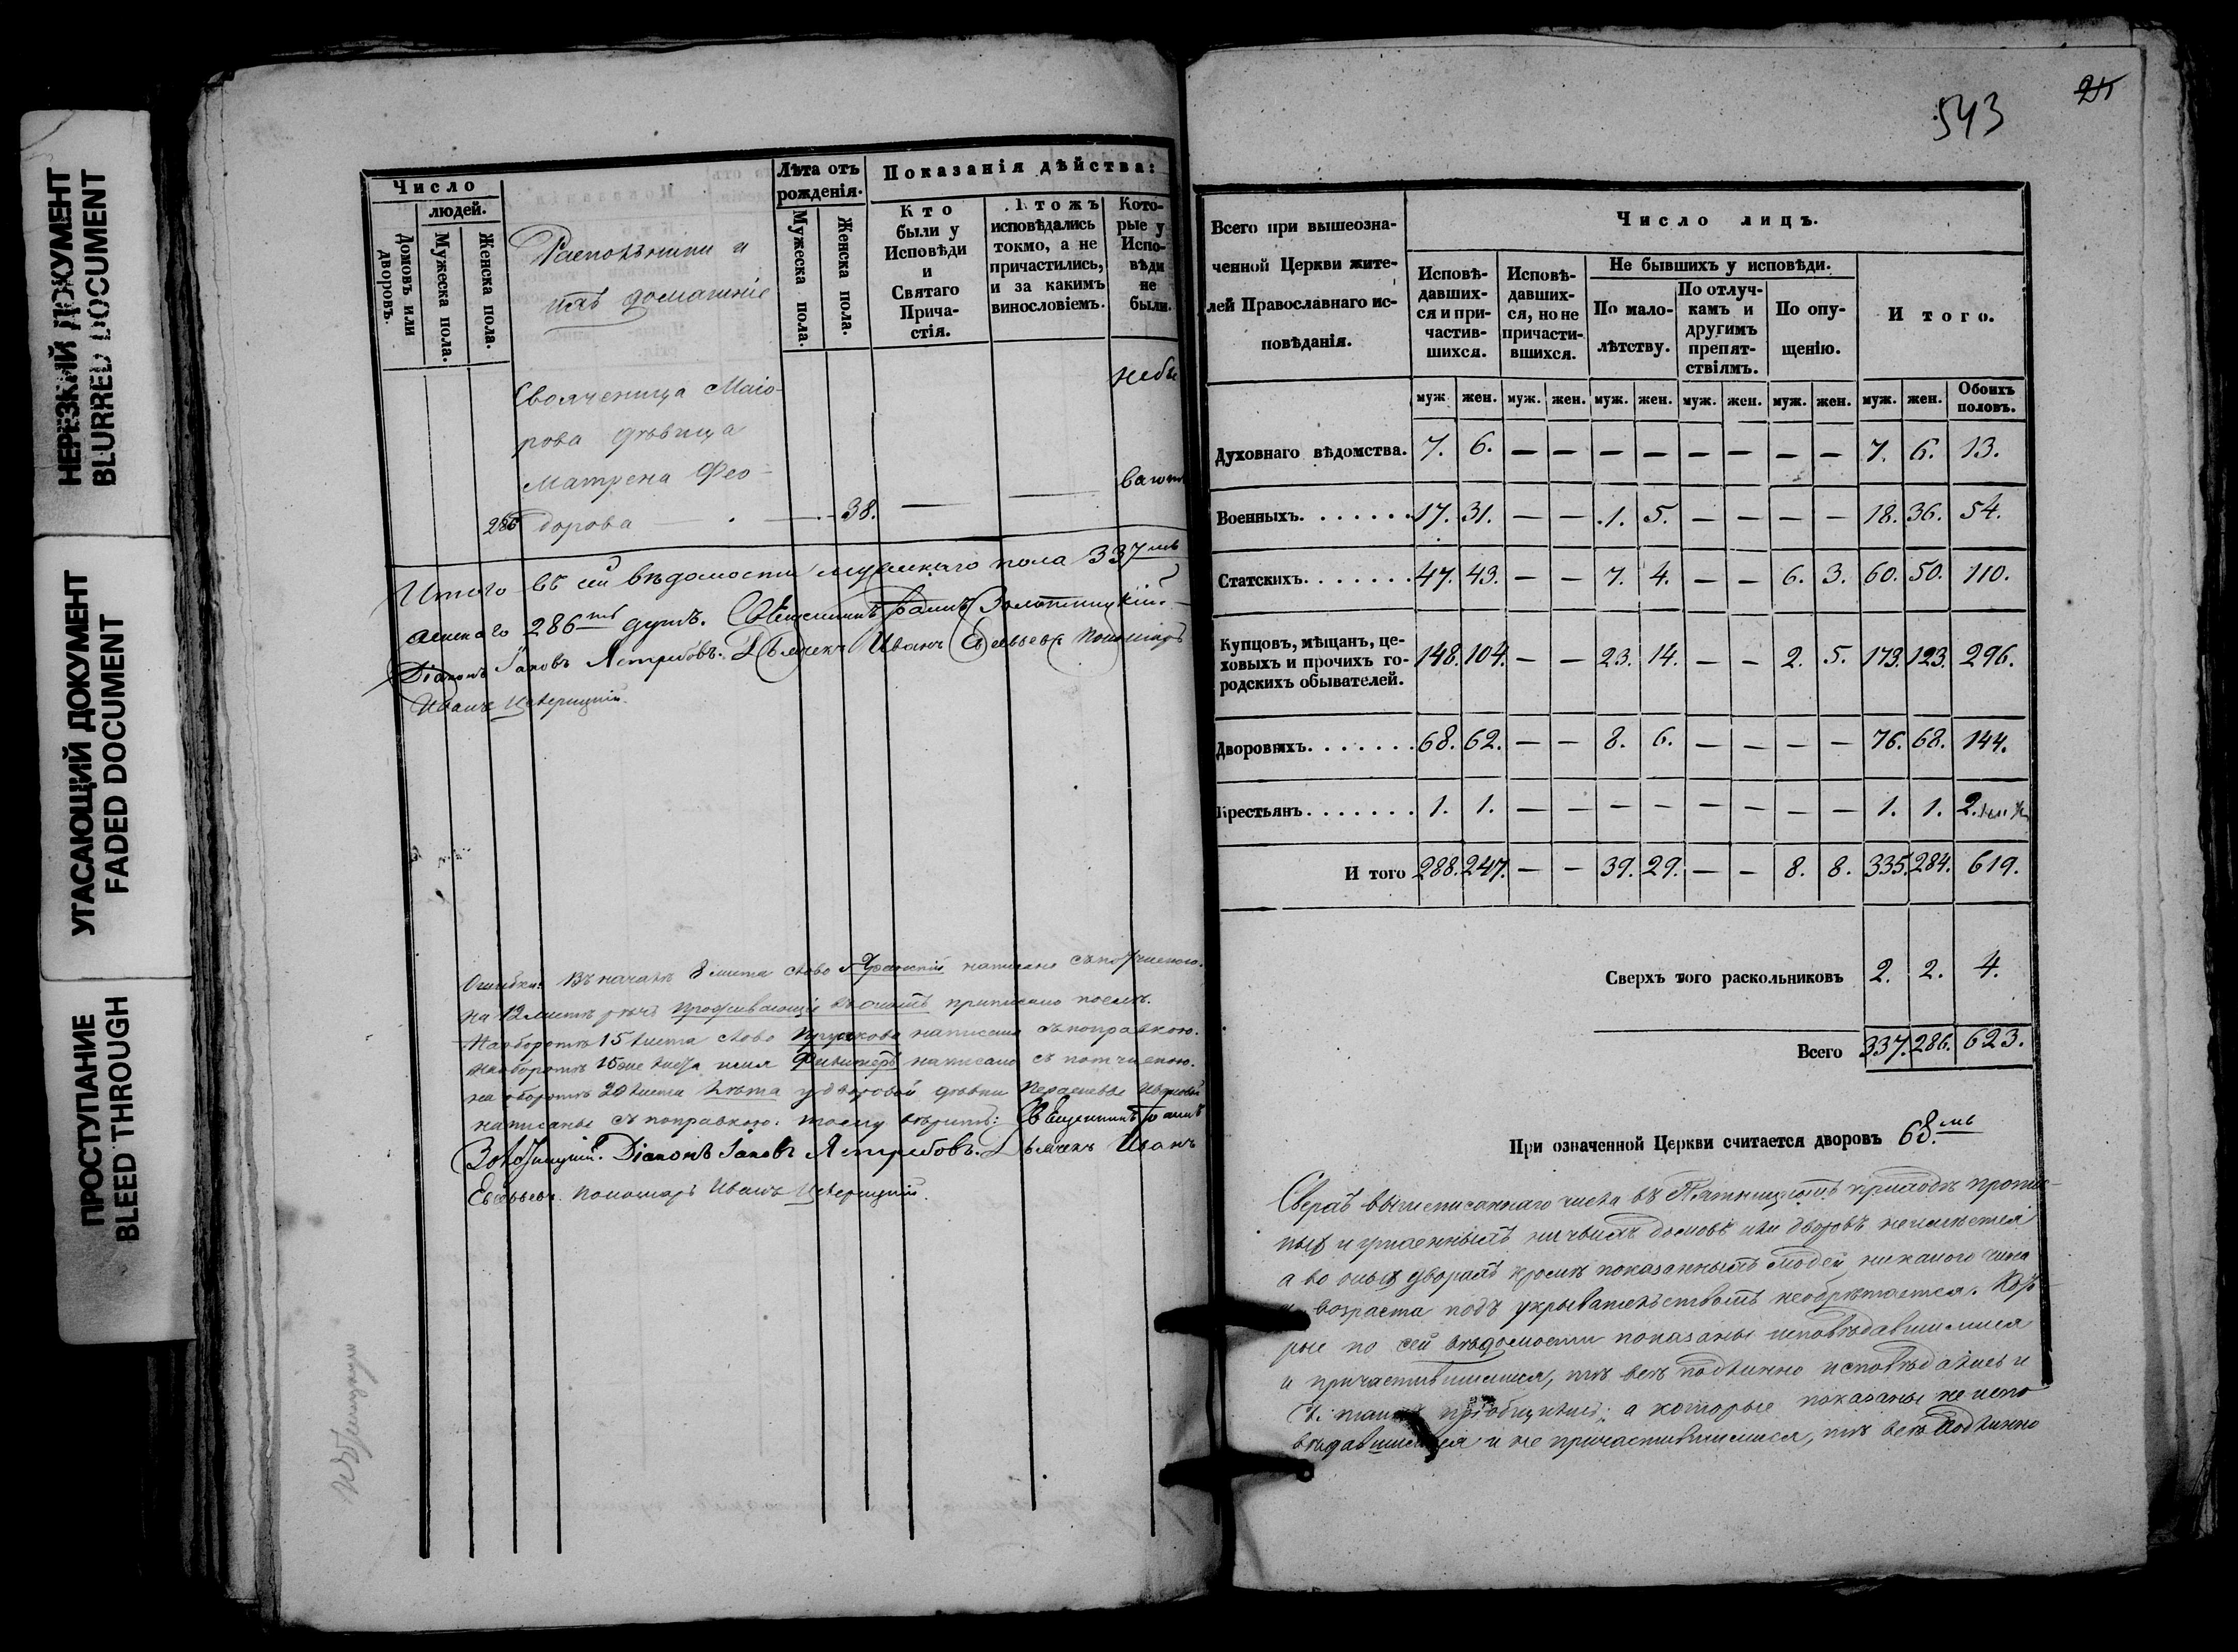 НЕРЕЗКИЙ ДОКУМЕНТ
BLURRED DOCUMENT
УГАСАЮЩИЙ ДОКУМЕНТ
FADED DOCUMENT
ПРОСТУПАНИЕ
BLEED THROUGH
Число
людей.
Домовъ или дворовъ.
Мужеска пола.
Женска пола.
Раскольники и
ихъ домашніе
Лѣта отъ
рожденія.
Мужеска пола.
Женска пола.
Показанія дѣйства:
Кто
были у
Исповѣди
и
Святаго
Прича-
стія.
Ктожъ
исповѣдались
токмо, а не
причастились,
и за какимъ
винословіемъ.
Кото-
рые у
Испо-
вѣди
не
были.
Свояченица Маіо-
небы
рова дѣвица
Матрена Фео-
286 дорова — 38. — —
Итого въ сей вѣдомости мужескаго пола 337мь
женскаго 286ть душъ. Священникъ Золотницкій.
Діаконъ Іаковъ Ястребовъ. Дьячекъ Иванъ Пономарь
Иванъ
Ошибки: Въ началѣ 8 листа слово написано съ почисткою.
на 12 листѣ рѣчь проживающія приписано послѣ.
На оборотѣ 15 листа слово написано съ поправкою.
на оборотѣ листа имя написано съ почисткою.
на оборотѣ 20 листа лѣта у дворовой дѣвки
написаны съ поправкою. тому вѣрить: Священникъ
Золотницкій. Діаконъ Іаковъ Ястребовъ. Дьячекъ Иванъ
Пономарь Иванъ
543
25
Всего при вышеозна-
ченной Церкви жите-
лей Православнаго ис-
повѣданія.
Число лицъ.
Исповѣ-
давших-
ся и при-
частив-
шихся.
Исповѣ-
давших-
ся, но не
причасти-
вшихся.
Не бывшихъ у исповѣди.
По мало-
лѣтству.
По отлуч-
камъ и
другимъ
препят-
ствіямъ.
По опу-
щенію.
И того.
муж. жен. муж. жен. муж. жен. муж. жен. муж. жен. муж. жен. Обоихъ половъ.
Духовнаго вѣдомства. 7. 6. — — — — — — — — 7. 6. 13.
Военныхъ. . . . . . . 17. 31. — — 1. 5. — — — — 18. 36. 54.
Статскихъ. . . . . . . 47. 43. — — 7. 4. — — 6. 3. 60. 50. 110.
Купцовъ, мѣщанъ, це-
ховыхъ и прочихъ го-
родскихъ обывателей. 148. 104. — — 23. 14. — — 2. 5. 173. 123. 296.
Дворовыхъ. . . . . . . 68. 62. — — 8. 6. — — — — 76. 68. 144.
Крестьянъ. . . . . . . 1. 1. — — — — — — — — 1. 1. 2.
И того 288. 247. — — 39. 29. — — 8. 8. 335. 284. 619.
Сверхъ того раскольниковъ 2. 2. 4.
Всего 337. 286. 623.
При означенной Церкви считается дворовъ 68.мь
Сверхъ вышеписаннаго числа въ приходѣ пропис-
ныхъ и утаенныхъ ничьихъ домовъ или дворовъ неимѣется
а во оныхъ дворахъ кромѣ показанныхъ людей никакого чина
и возраста подъ укрывательствомъ необрѣтается. Кото-
рые по сей вѣдомости показаны исповѣдавшимися
и причастившимися, тѣ всѣ подлинно исповѣдались и
С. таинъ пріобщились; а которые показаны не испо
вѣдавшимися и не причастившимися, тѣ всѣ подлинно